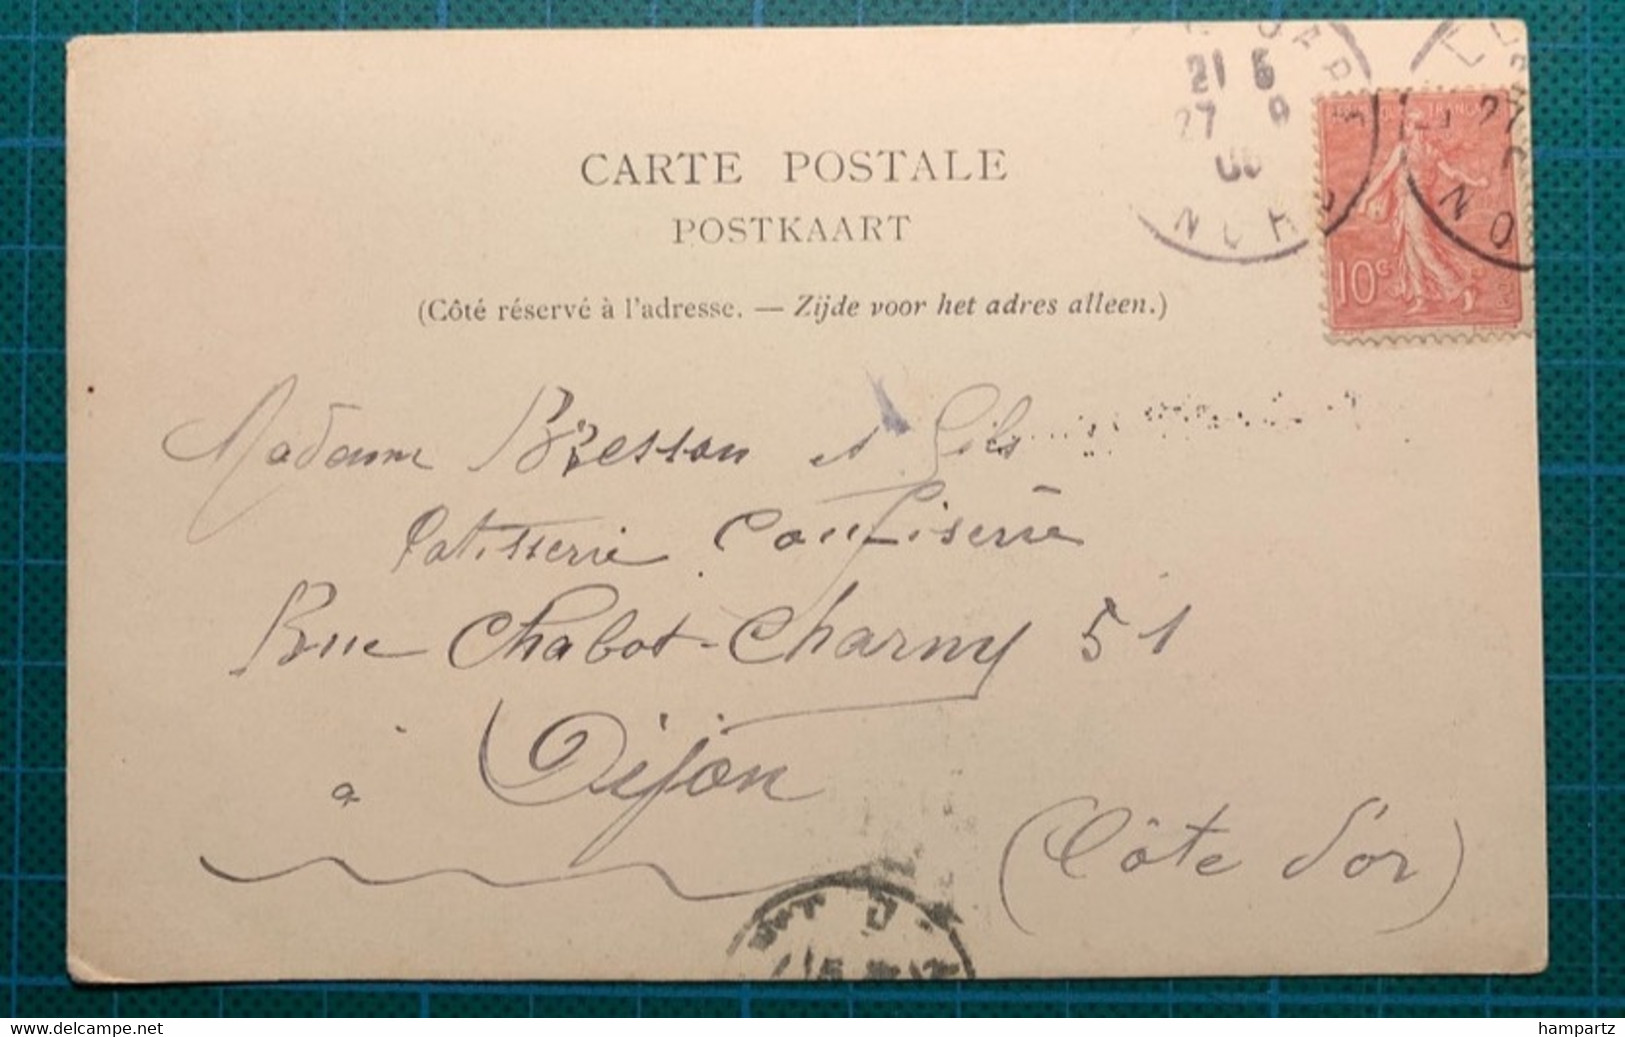 21 5
27 9
NORD
CARTE POSTALE
POSTKAART
10c
(Côté réservé à l'adresse. — Zijde voor het adres alleen.)
Madame Bresson et
Patisserie Confiserie
Rue Chabot-Charny 51
à Dijon
(Côte d'or)
www.delcampe.net
hampartz